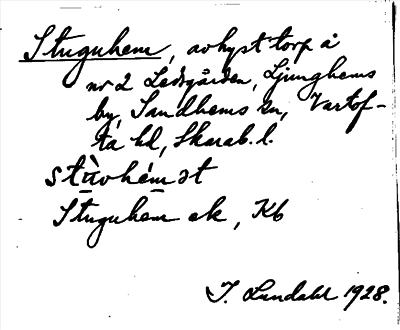 Stuguhem, avhyst torp å
nr 2 Ledsgården, Ljunghems
by, Sandhems sn, Vartof-
ta hd, Skarab. l.
stùvohémət
Stuguhem ek, Kb
I. Lundahl 1928.